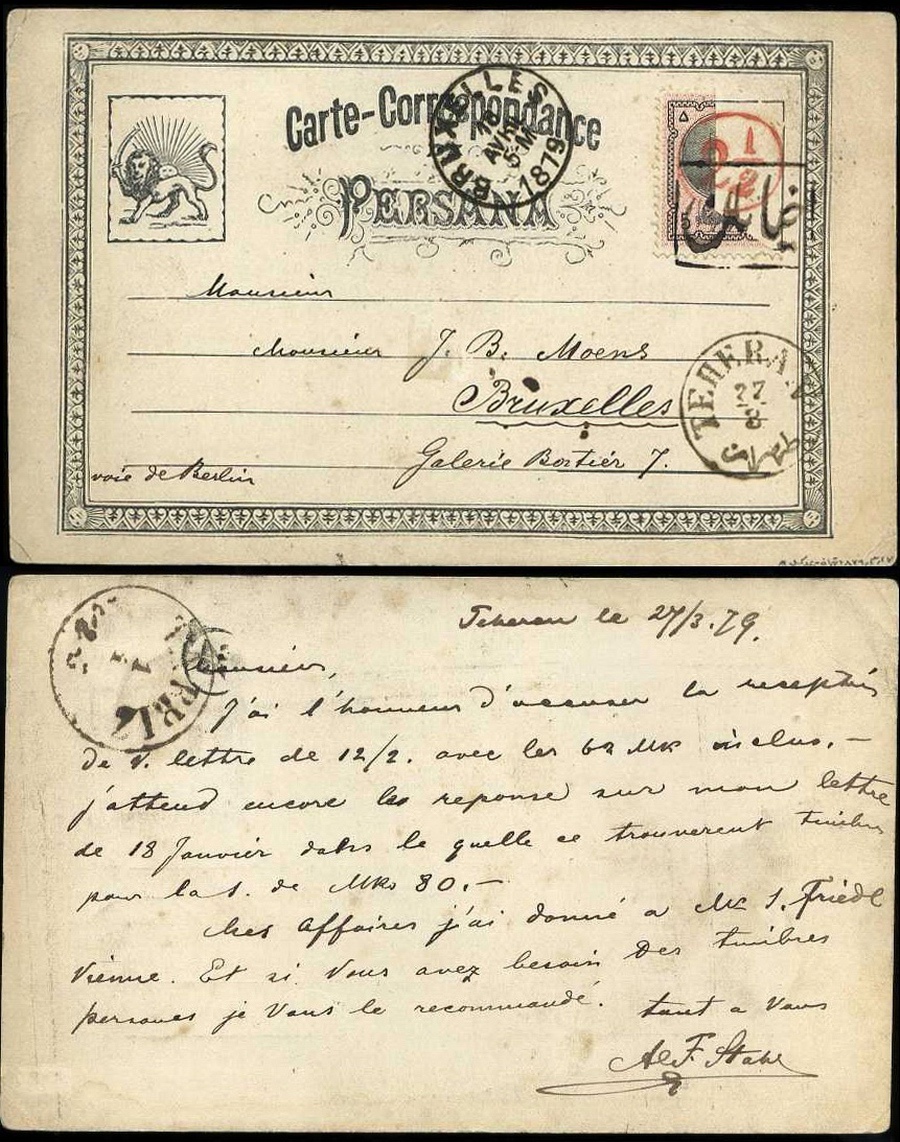 Carte-Correspondance
PERSANA
BRUXELLES
AVR
5-M
1879
5
2 1/2
Monsieur
Monsieur J. B. Moens
Bruxelles
Galerie Bortier 7.
voie de Berlin
TEHERAN
27
3
Teheran le 27/3.79.
Monsieur,
J'ai l'honneur d'accuser la receptión
de V. lettre de 12/2. avec les 62 Mk inclus.-
j'attend encore la reponse sur mon lettre
de 18 Janvier dans le quelle ce trouverent timbres
pour la S. de Mks 80.-
Mes Affaires j'ai donné a Mr S. Friedl
Vienne. Et si Vous avez besoin Des timbres
persanes je Vous le recommandé.
tout a Vous
A F. Stahl